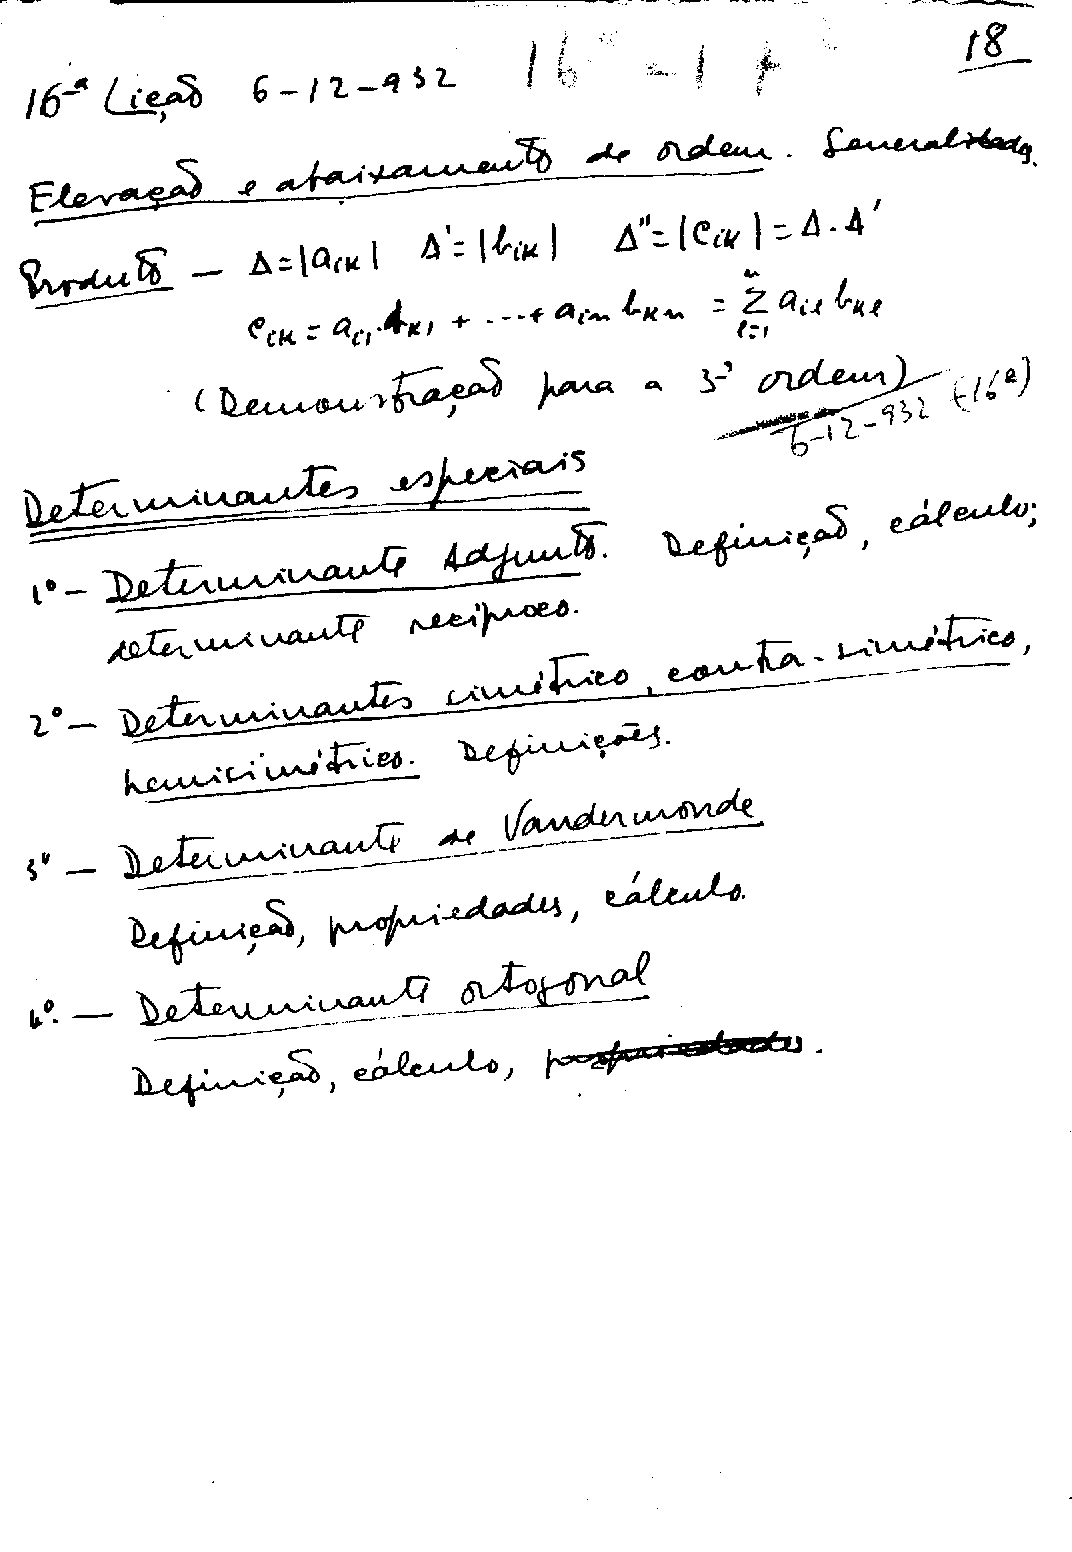 18
16ª Lição 6-12-932
Elevação e abaixamento de ordem. Generalidades.
Produto — Δ=|aik| Δ'=|bik| Δ''=|cik|=Δ.Δ'
cik = ai1.bk1 + ...+ ain bkn = Σ ail bkl
n
l=1
(Demonstração para a 3ª ordem)
6-12-932 (16ª)
Determinantes especiais
1º - Determinante Adjunto. Definição, cálculo;
determinante recíproco.
2º — Determinantes simétrico, contra-simétrico,
hemisimétrico. Definições.
3º — Determinante de Vandermonde
Definição, propriedades, cálculo.
4º. — Determinante ortogonal
Definição, cálculo, propriedades.